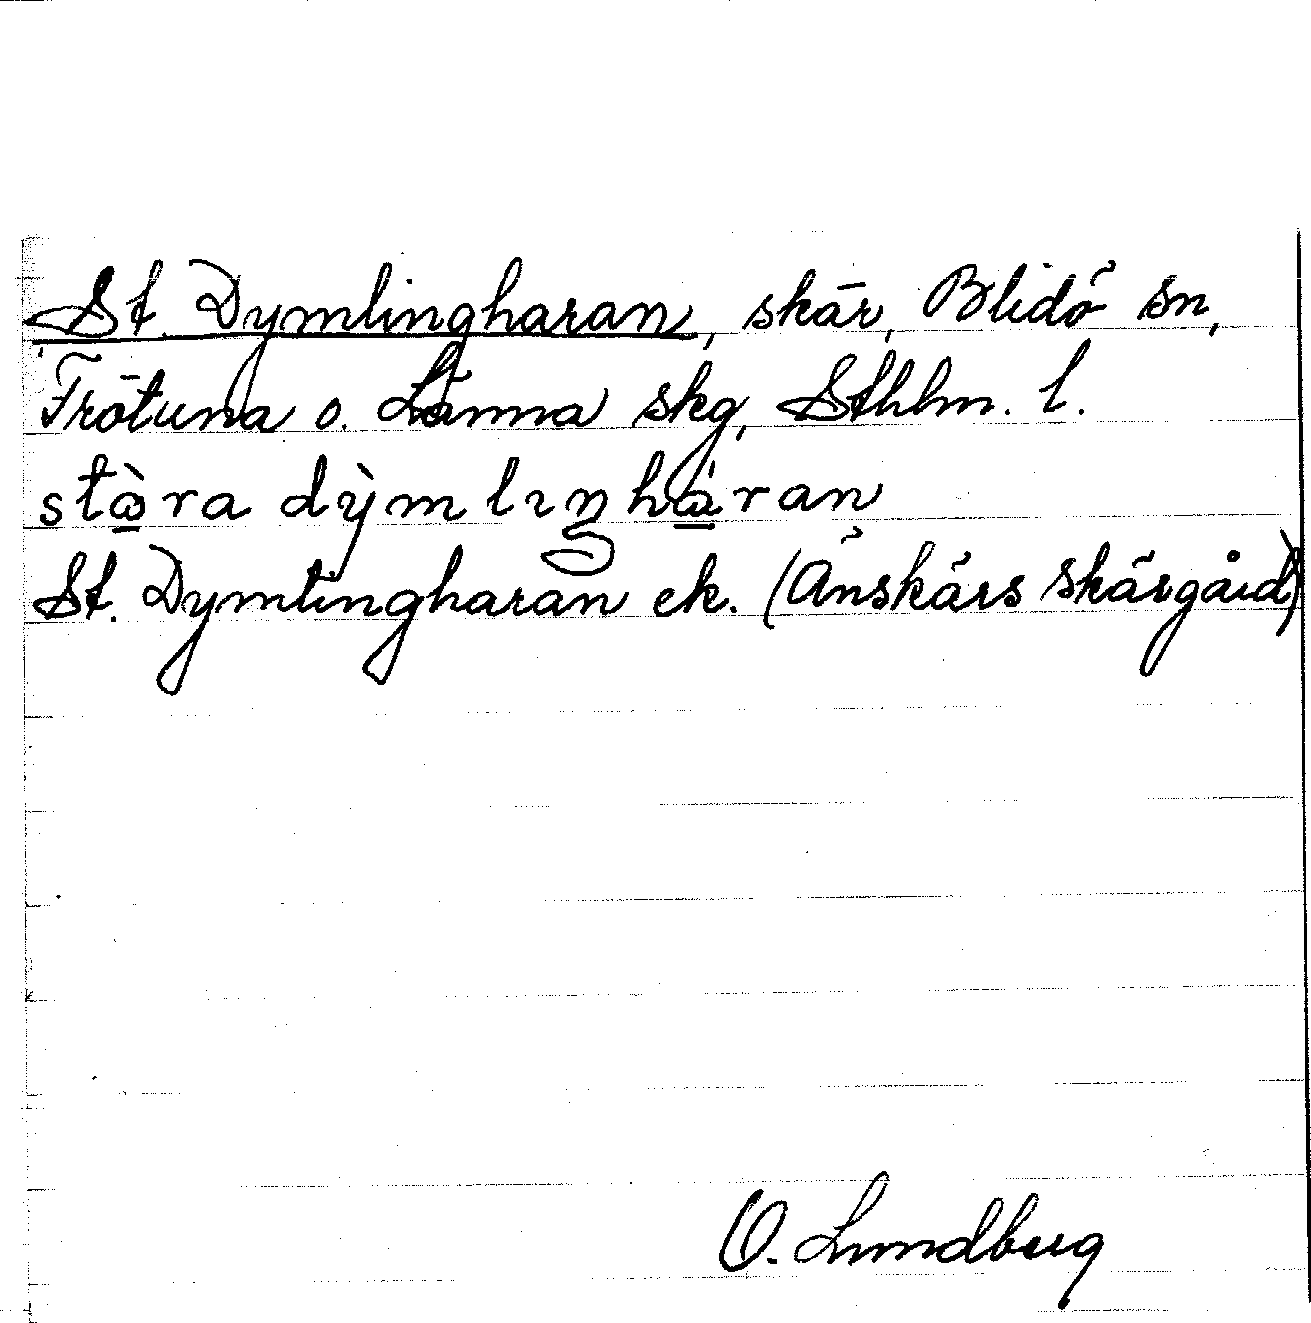 St. Dymlingharan, skär, Blidö sn,
Frötuna o. Länna skg, Sthlm. l.
stà̱ra dỳmlıŋhà̱ran
St. Dymlingharan ek. (Ånskärs skärgård)
O. Lundberg